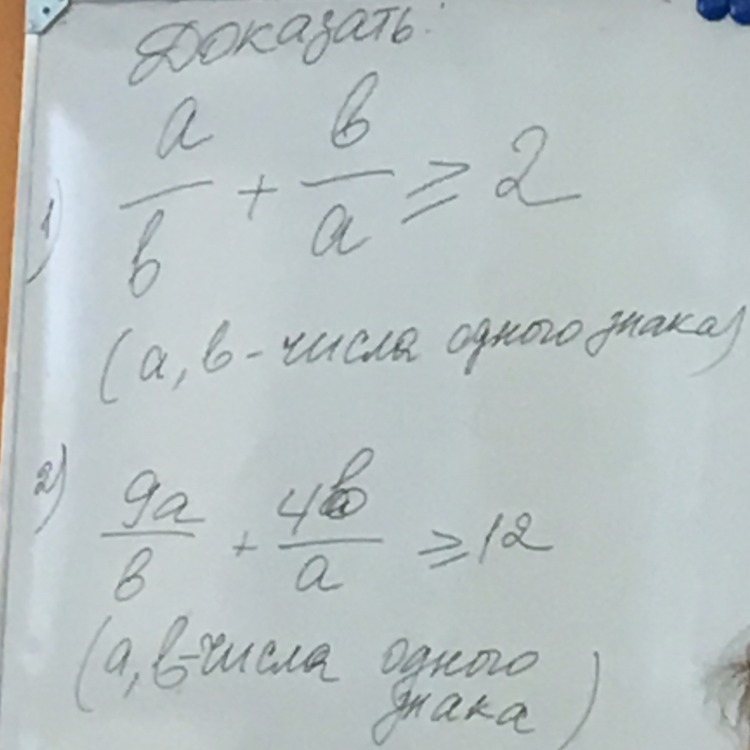 Доказать:
1) a/b + b/a ≥ 2
(a, b - числа одного знака)
2) 9a/b + 4b/a ≥ 12
(a, b - числа одного
знака)